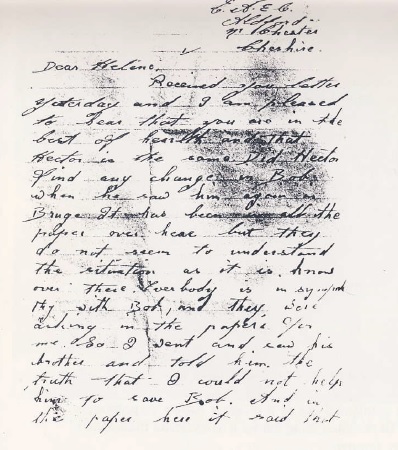 Aldford
Nr Chester
Cheshire.
Dear Helene,
Received your letter
yesterday and I am pleased
to hear that you are in the
best of health and that
Hector is the same Did Hector
find any change in Bob
when he saw him again in
Bruge It has been in all the
paper over hear but they
do not seem to understand
the situation as it is know
over there Everybody is in sympath
thy with Bob, and they were
asking in the papers for
me. So I went and saw his
brother and told him the
truth that I could not help
him to save Bob. And in
the paper here it said that